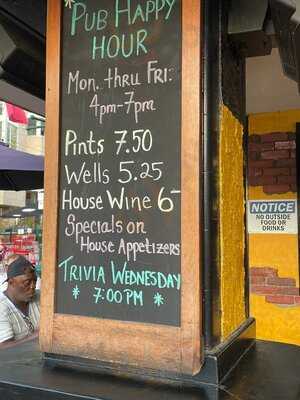 Pub Happy
Hour
Mon. thru Fri:
4pm-7pm
Pints 7.50
Wells 5.25
House Wine 6-
Specials on
House Appetizers
Trivia Wednesday
* 7:00pm *
NOTICE
NO OUTSIDE
FOOD OR
DRINKS